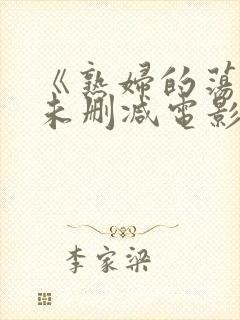 《熟妇的荡
未删减电影
李家梁